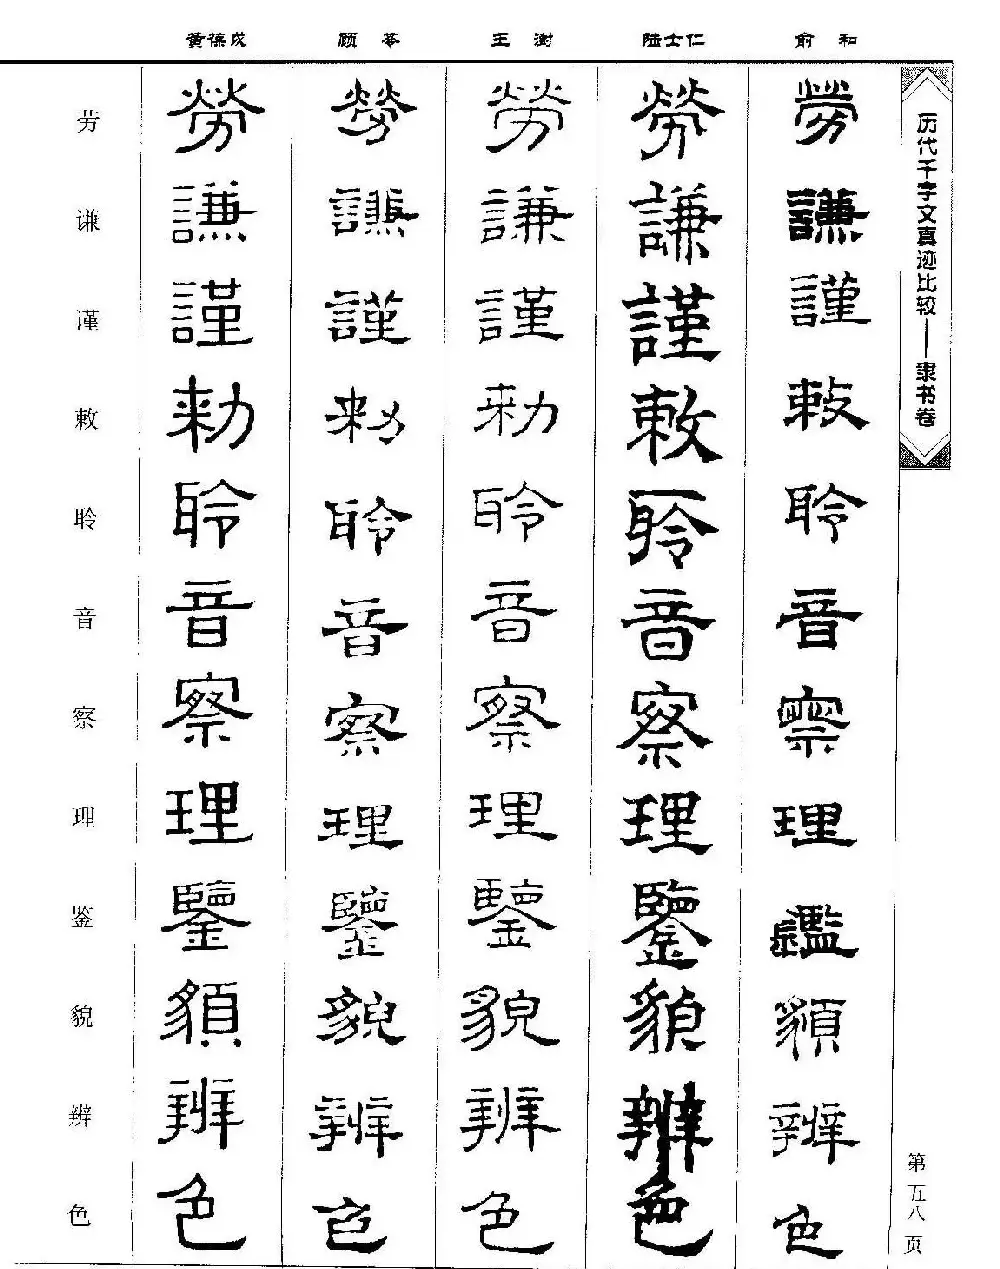 黄葆戉 顾苓 王澍 陆士仁 俞和
历代千字文真迹比较——隶书卷
劳 勞 勞 勞 勞 勞
谦 謙 謙 謙 謙 謙
谨 謹 謹 謹 謹 謹
敕 勑 勑 勑 敕 敕
聆 聆 聆 聆 聆 聆
音 音 音 音 音 音
察 察 察 察 察 察
理 理 理 理 理 理
鉴 鑒 鑒 鑒 鑒 鑑
貌 䫉 貌 貌 貌 䫉
辨 辨 辨 辨 辨 辨
色 色 色 色 色 色
第五八页